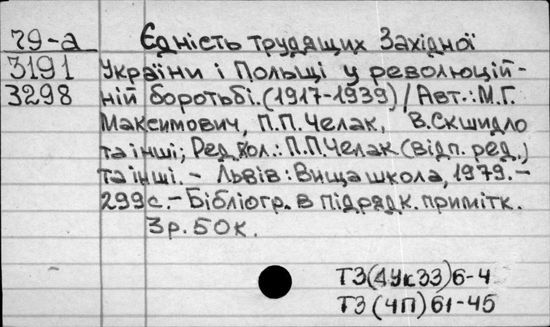 79-а Єдність трудящих Західної
3191 України і Польщі у революцій-
3298 ній боротьбі.(1917-1939)/Авт.:М.Г.
Максимович, П.П.Челак, В.Скшидло
та інші; Ред.кол.: П.П.Челак(відп. ред.)
та інші. – Львів: Вища школа, 1979. –
299с. – Бібліогр. в підрядк. примітк.
3р. 50к.
ТЗ(4Ук33)6-4
ТЗ(4П)61-45